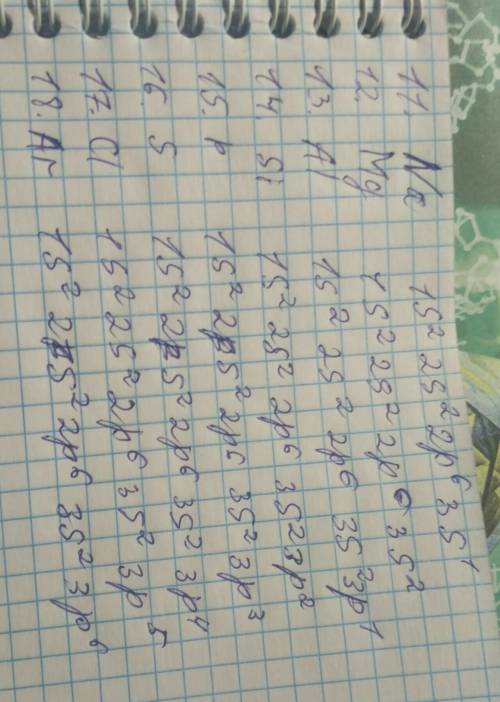 11. Na 1s² 2s² 2p⁶ 3s¹
12. Mg 1s² 2s² 2p⁶ 3s²
13. Al 1s² 2s² 2p⁶ 3s² 3p¹
14. Si 1s² 2s² 2p⁶ 3s² 3p²
15. P 1s² 2s² 2p⁶ 3s² 3p³
16. S 1s² 2s² 2p⁶ 3s² 3p⁴
17. Cl 1s² 2s² 2p⁶ 3s² 3p⁵
18. Ar 1s² 2s² 2p⁶ 3s² 3p⁶